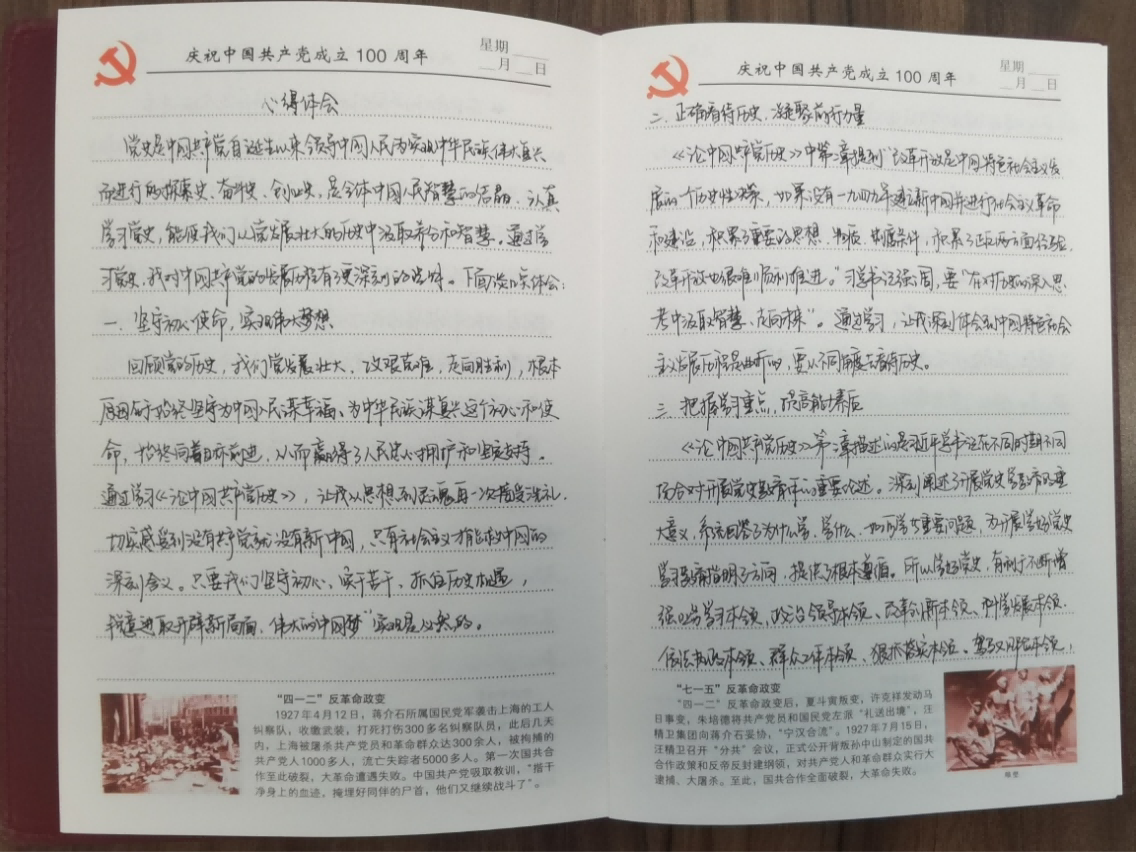 庆祝中国共产党成立 100 周年
星期
月 日
心得体会
党史是中国共产党自诞生以来领导中国人民为实现中华民族伟大复兴
而进行的探索史、奋斗史、创业史,是全体中国人民智慧的结晶。认真
学习党史,能使我们从党发展壮大的历史中汲取养分和智慧。通过学
习党史,我对中国共产党的发展历程有了更深刻的。下面谈几点体会:
一、坚守初心使命,实现伟大梦想
回顾党的历史,我们党发展壮大、攻艰克难,走向胜利,根本
原因在于始终坚守为中国人民谋幸福、为中华民族谋复兴这个初心和使
命,始终向着目标前进,从而赢得了人民衷心拥护和坚定支持。
通过学习《论中国共产党历史》,让我从思想到灵魂再一次接受洗礼,
切实感受到没有共产党就没有新中国,只有社会主义才能救中国的
深刻含义。只要我们坚守初心、实干苦干、抓住历史机遇,
锐意进取开辟新局面,伟大的“中国梦”实现是必然的。
“四一二”反革命政变
1927年4月12日,蒋介石所属国民党军袭击上海的工人
纠察队,收缴武装,打死打伤300多名纠察队员,此后几天
内,上海被屠杀共产党员和革命群众达300余人,被拘捕的
共产党人1000多人,流亡失踪者5000多人。第一次国共合
作至此破裂、大革命遭遇失败。中国共产党吸取教训,“揩干
净身上的血迹,掩埋好同伴的尸首,他们又继续战斗了”。
庆祝中国共产党成立 100 周年
星期
月 日
二、正确看待历史,凝聚前行力量
《论中国共产党历史》中第章提到“改革开放是中国特色社会主义发
展的一个历史性决策,如果没有一九四九年建立新中国并进行社会主义革命
和建设,积累了重要的思想、物质、制度条件,积累了正反两方面经验,
改革开放也很难顺利推进。”习总书记强调,要“在对历史的深入思
考中汲取智慧、走向未来”。通过学习,让我深刻体会到中国特色社会
主义发展历程是曲折的,要从不同角度去看待历史。
三、把握学习重点,提高能力素质
《论中国共产党历史》第章描述的是习近平总书记在不同时期不同
场合对开展党史教育的重要论述。深刻阐述了开展党史学习教育的重
大意义,系统回答了为什么学、学什么、如何学等重要问题,为开展学好党史
学习教育指明了方向,提供了根本遵循。所以学好党史,有利于不断增
强四学习本领、政治领导本领、改革创新本领、科学发展本领、
依法执政本领、群众工作本领、狠抓落实本领、驾驭风险本领,
“七一五”反革命政变
“四一二”反革命政变后,夏斗寅叛变,许克祥发动马
日事变,朱培德将共产党员和国民党左派“礼送出境”,汪
精卫集团向蒋介石妥协,“宁汉合流”。1927年7月15日,
汪精卫召开“分共”会议,正式公开背叛孙中山制定的国共
合作政策和反帝反封建纲领,对共产党人和革命群众实行大
逮捕、大屠杀。至此,国共合作全面破裂,大革命失败。